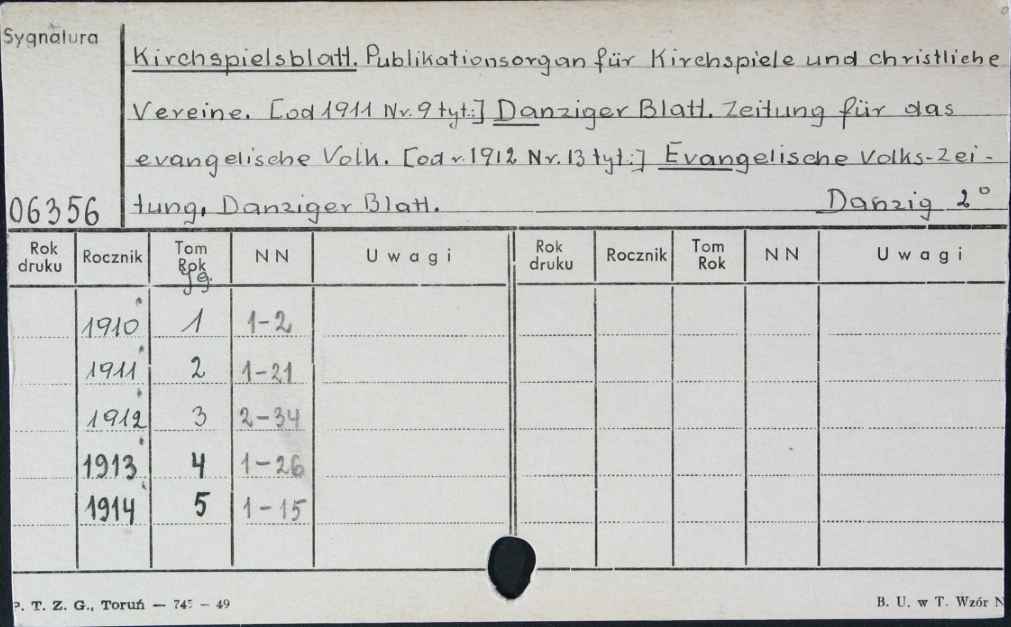 Sygnatura
Kirchspielsblatt. Publikationsorgan für Kirchspiele und christliche
Vereine. [od 1911 Nr. 9 tyt:] Danziger Blatt. Zeitung für das
evangelische Volk. [od r. 1912 Nr. 13 tyt:] Evangelische Volks-Zei-
06356 tung, Danziger Blatt. Danzig 2°
Rok druku Rocznik Tom Rok NN Uwagi Rok druku Rocznik Tom Rok NN Uwagi
1910 1 1-2
1911 2 1-21
1912 3 2-34
1913 4 1-26
1914 5 1-15
P. T. Z. G., Toruń — – 49 B. U. w T. Wzór N